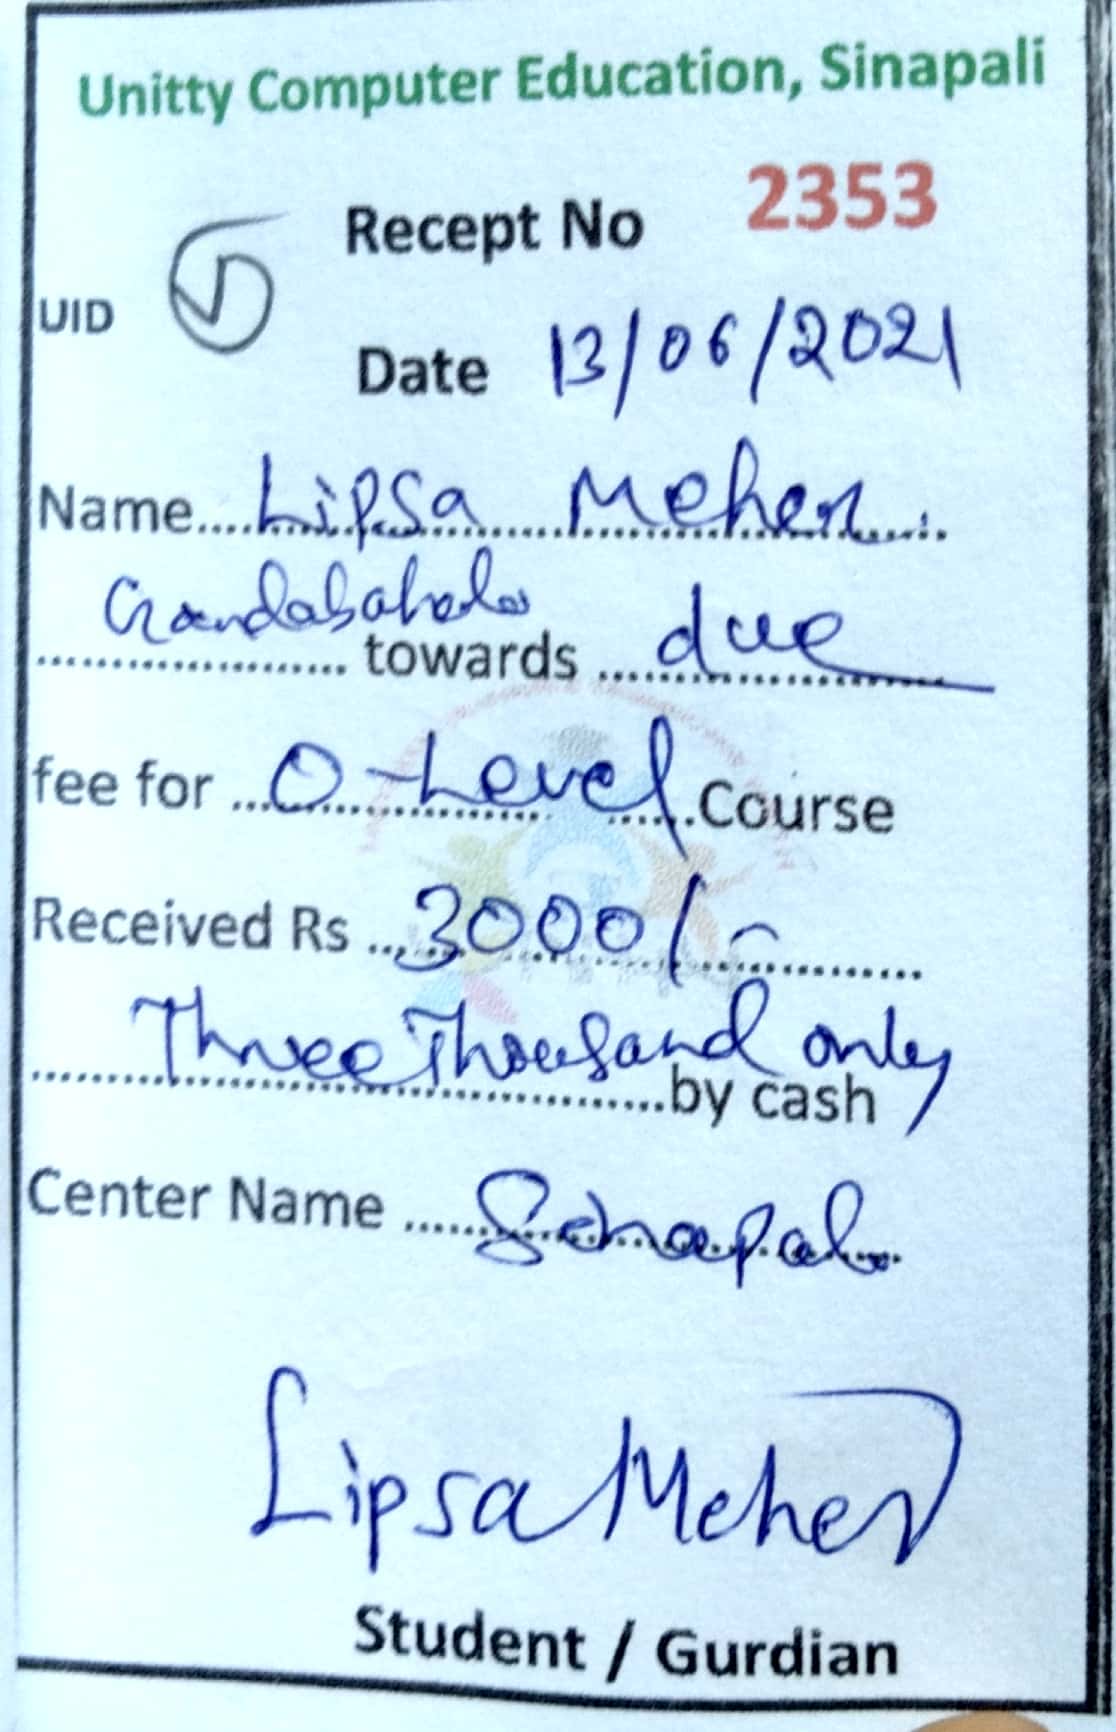 Unitty Computer Education, Sinapali
Recept No 2353
UID
Date 13/06/2021
Name....Lipsa Meher....
Gandabahal towards due
fee for ...O-Level...Course
Received Rs ...3000/-
Three Thousand only
by cash
Center Name ......Sinapali
Lipsa Meher
Student / Gurdian